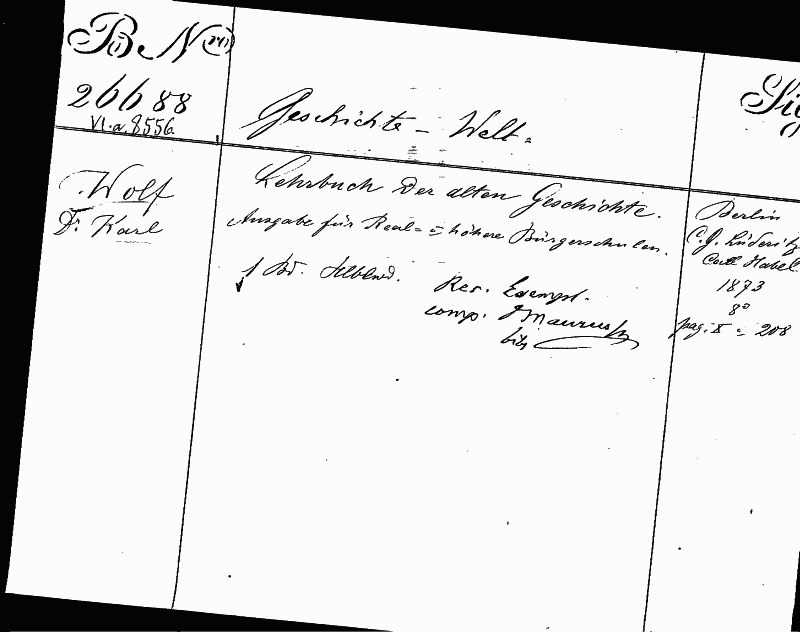 B. N.
26688
VI.a.8556.
Geschichte - Welt.
Sig
Wolf
Dr. Karl
Lehrbuch der alten Geschichte.
Ausgabe für Real= = höhere Bürgerschulen.
1 Bd. Hlblwd.
Rev. Exempl.
comp.
Berlin
C. G. Lüderitz
Carl Habel.
1873
8°
pag. X = 208